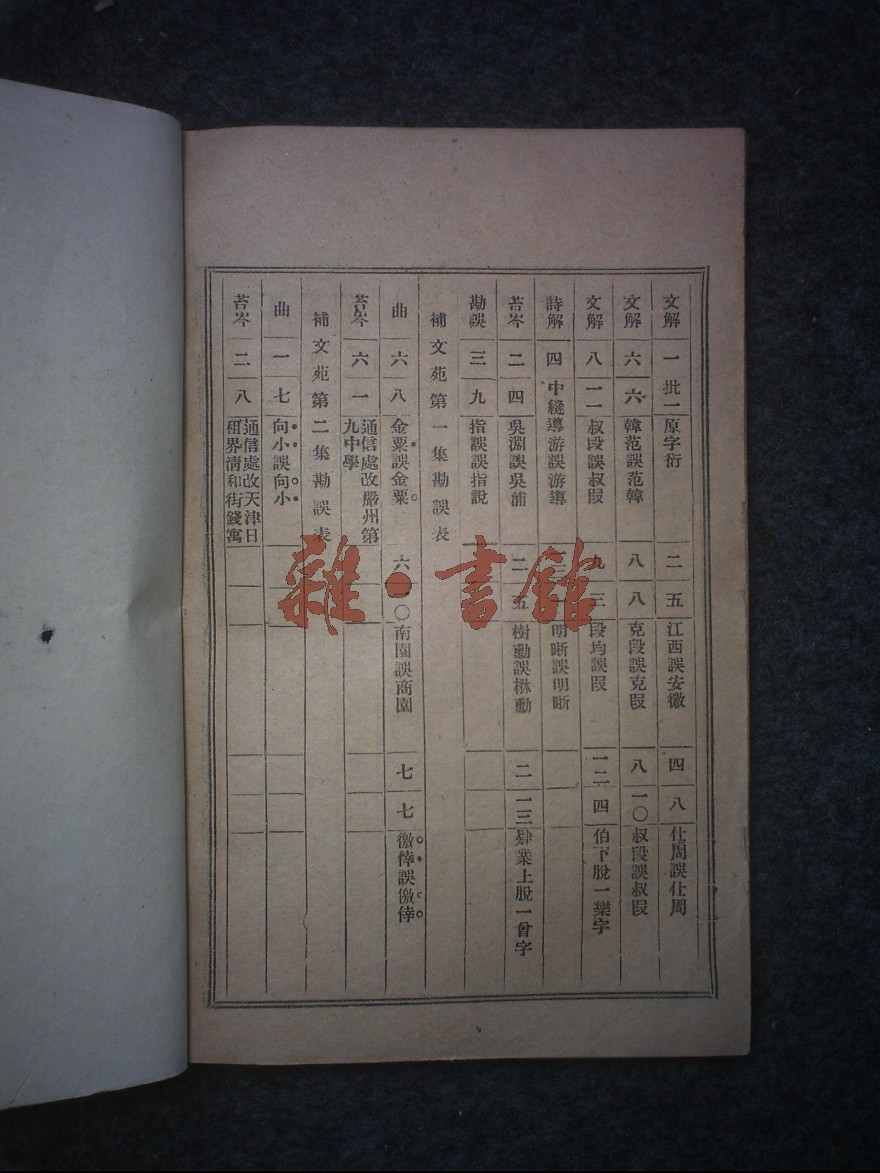 文解 一 批一 原字衍 二 五 江西誤安徽 四 八 仕周誤仕周
文解 六 六 韓范誤范韓 八 八 克段誤克叚 八 一〇 叔段誤叔叚
文解 八 一一 叔段誤叔叚 九 三 段均誤叚 一二 四 伯下脫一樂字
詩解 四 中縫 導游誤游導 明晰誤明晣
苔岑 二 四 吳淵誤吳浦 二 五 樹勳誤楙勳 二 一三 肄業上脫一曾字
勘誤 三 九 指誤誤指說
補文苑第一集勘誤表
曲 六 八 金粟誤金粟 六 一〇 南園誤商園 七 七 徼倖誤徼倖
苔岑 六 一 通信處改嚴州第
九中學
補文苑第二集勘誤表
曲 一 七 向小誤向小
苔岑 二 八 通信處改天津日
租界淸和街錢寓
雜·書館